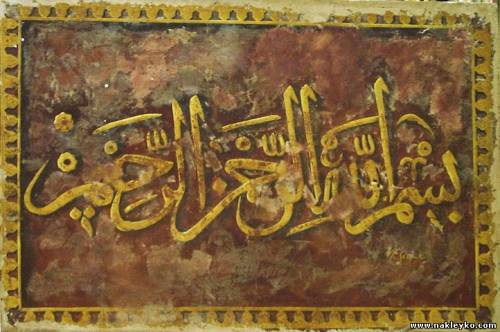 بسم الله الرحمن الرحيم
www.nakleyko.com